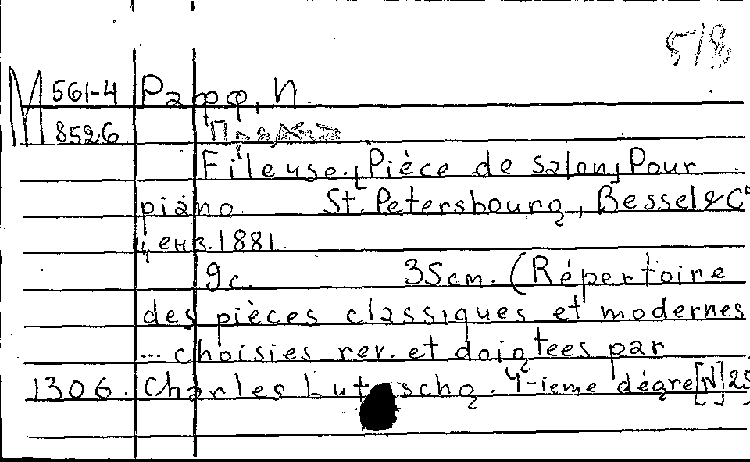 518
М 561-4 Рафф, И.
8526 Пряжа
Fileuse. [Pièce de salon] Pour
piano. St. Petersbourg, Bessel & Cº
ценз. 1881.
9 с. 35 cm. (Répertoire
des pièces classiques et modernes
... choisies rev. et doigtees par
1306. Charles Lutschg. 4-ieme dégre [N] 25